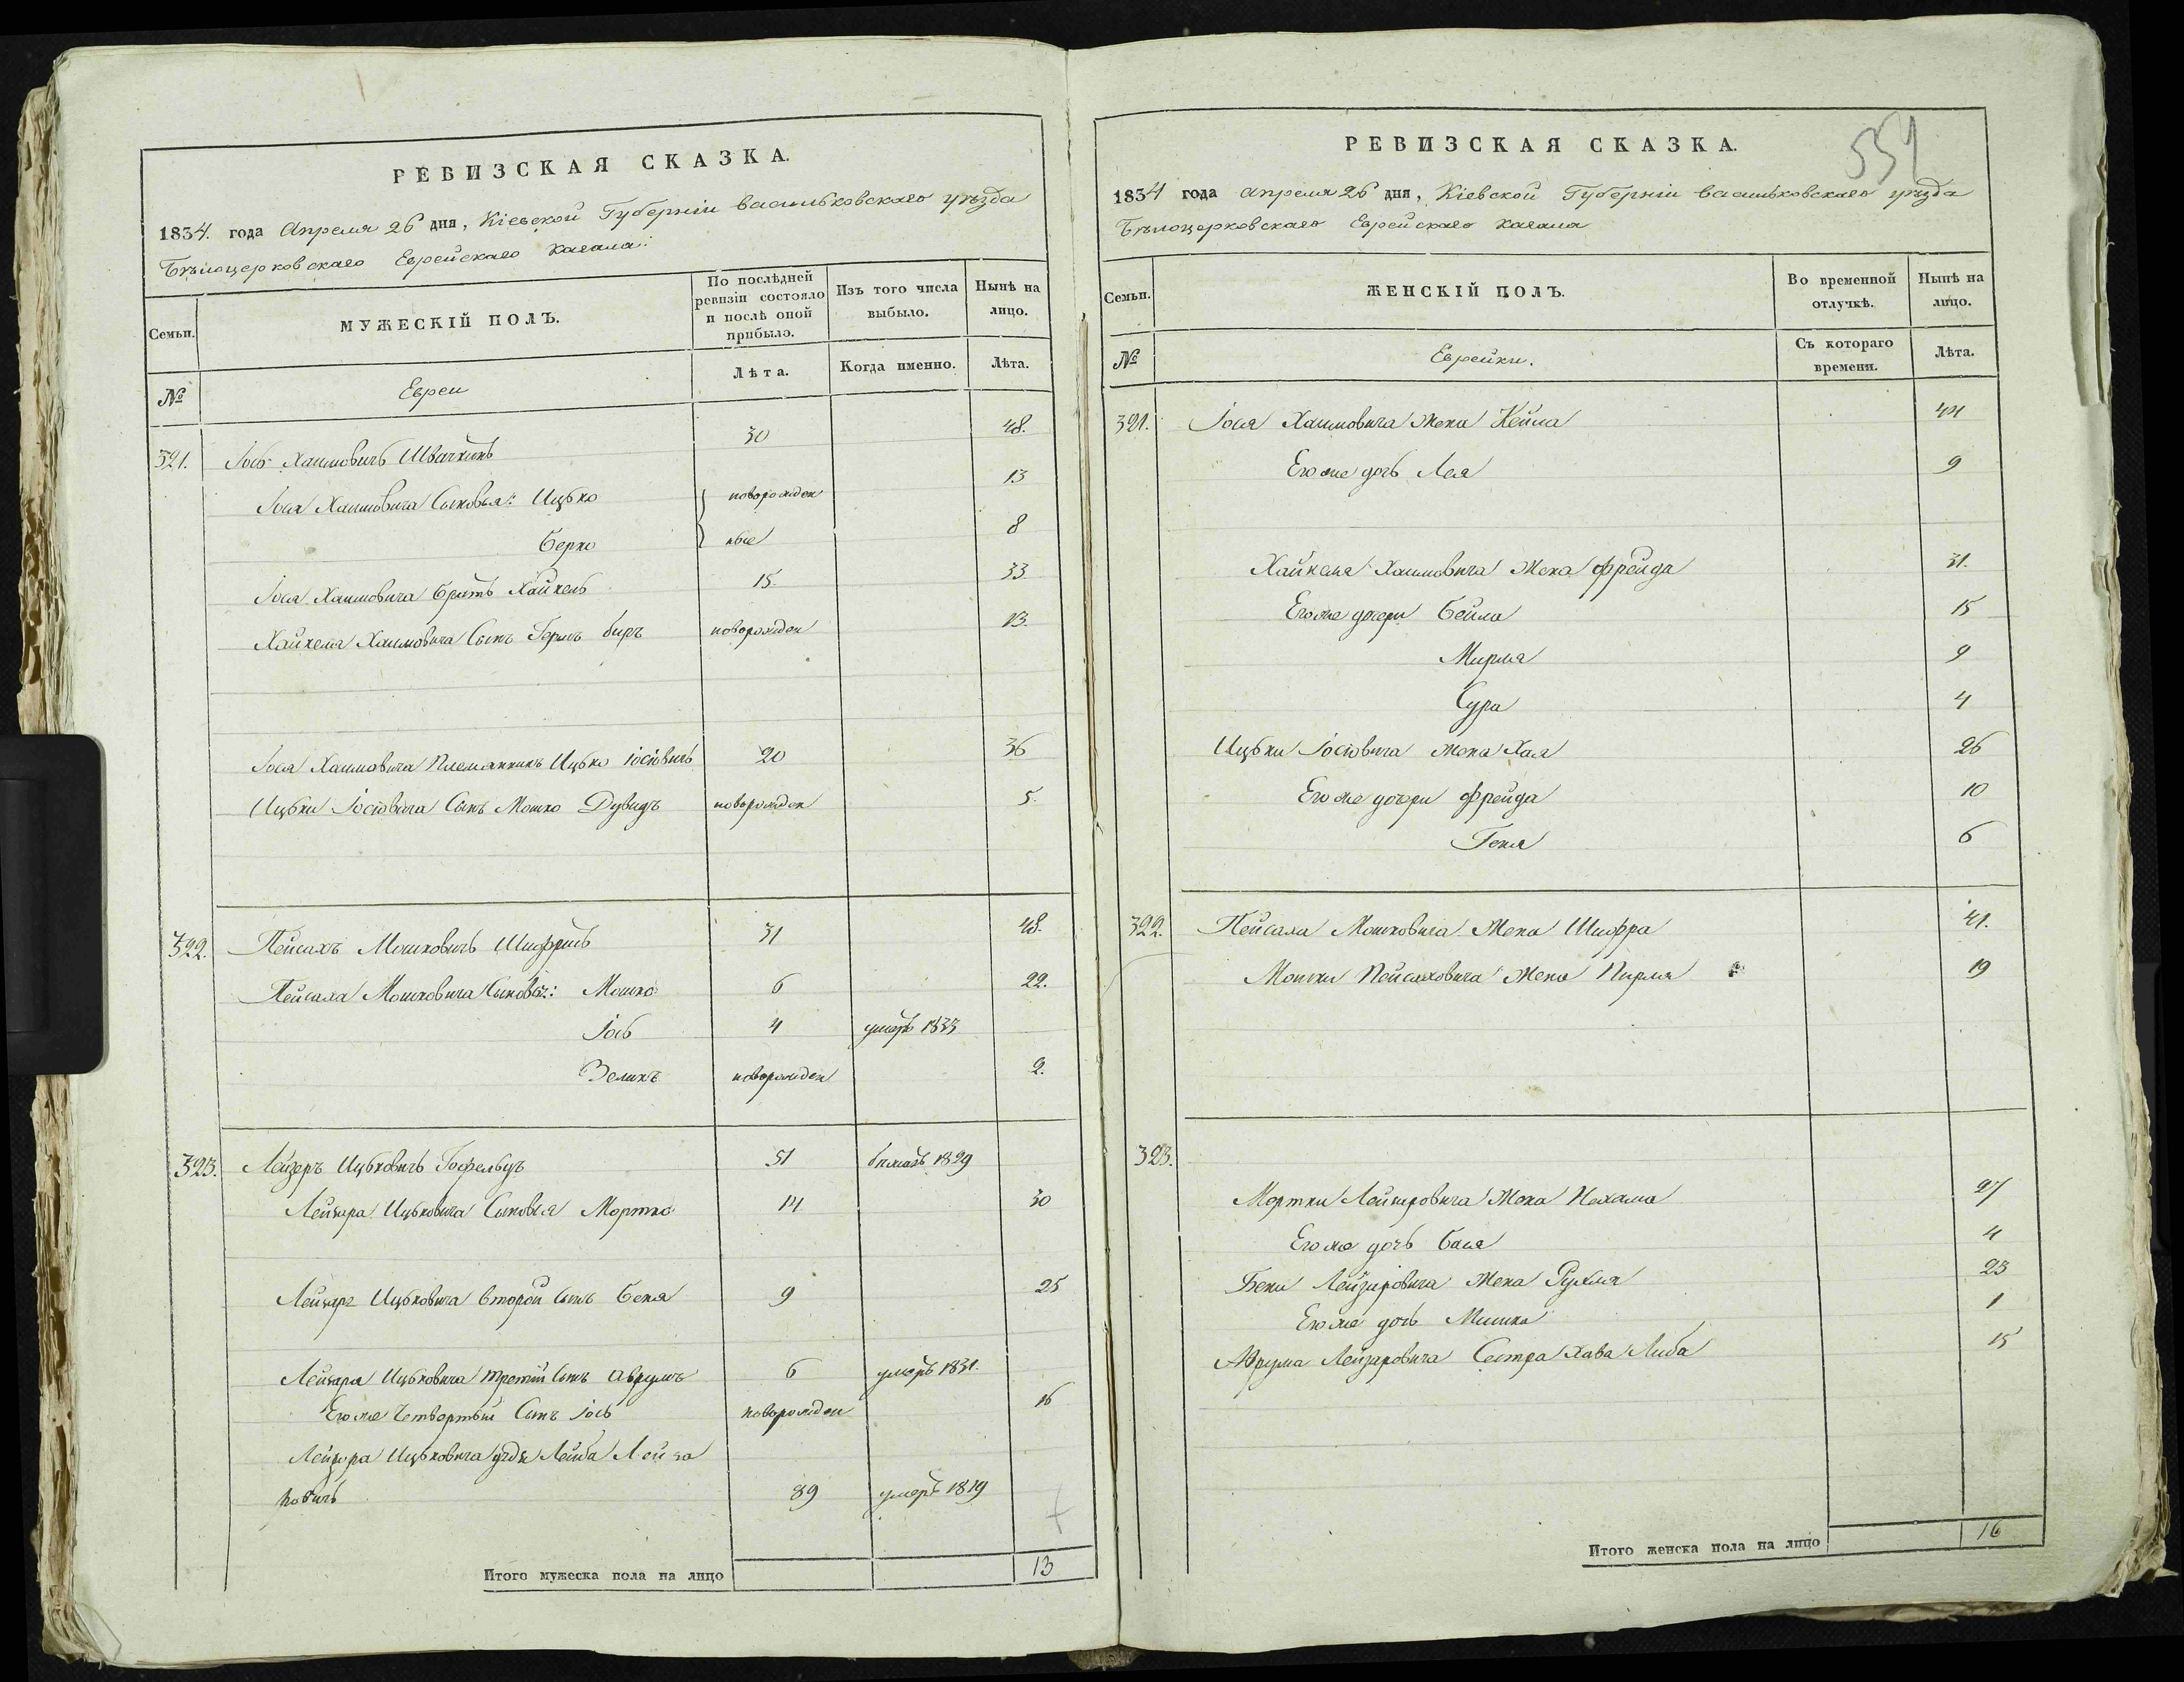 РЕВИЗСКАЯ СКАЗКА.
1834. года Апреля 26 дня, Кіевской Губерніи Васильковскаго уѣзда
Бѣлоцерковскаго Еврейскаго Кагала.
Семьи.
МУЖЕСКІЙ ПОЛЪ.
По послѣдней ревизіи состояло и послѣ оной прибыло.
Изъ того числа выбыло.
Нынѣ на лицо.
№
Евреи
Лѣта.
Когда именно.
Лѣта.
321. Іось Хаимовичъ 30 48.
Іося Хаимовича Сыновья: Ицько новорожден 13
Берко ные 8
Іося Хаимовича братъ Хайкель 15. 33.
Хайкеля Хаимовича Сынъ Гершъ беръ новорожден 13.
Іося Хаимовича Племянникъ Ицько Іосіовичъ 20 36
Ицьки Іосіовича Сынъ Мошко Дувидъ новорожден 5.
322. Пейсахъ Мошковичъ Шифринъ 31 48.
Пейсаха Мошковича Сыновья: Мошко 6 22.
Іось 4 умеръ 1833
Зелихъ новорожден 2.
323. Лейзеръ Ицьковичъ 51 бѣжалъ 1829
Лейзера Ицьковича Сыновья Мортко 14 30
Лейзера Ицьковича второй сынъ Беня 9 25
Лейзера Ицьковича третій сынъ Аврумъ 6 умеръ 1831.
Его же Четвертый Сынъ Іось новорожден 16
Лейзера Ицьковича дѣдъ Лейба Лейза
ровичъ 89 умеръ 1819
Итого мужеска пола на лицо 13
РЕВИЗСКАЯ СКАЗКА.
1834 года апреля 26 дня, Кіевской Губерніи Васильковскаго уѣзда
Бѣлоцерковскаго Еврейскаго Кагала
Семьи.
ЖЕНСКІЙ ПОЛЪ.
Во временной отлучкѣ.
Нынѣ на лицо.
№
Еврейки.
Съ котораго времени.
Лѣта.
321. Іося Хаимовича Жена Кейла 44
Его же дочь Лея 9
Хайкеля Хаимовича Жена Фрейда 31.
Его же дочери Бейла 15
Мирля 9
Сура 4
Ицьки Іосіовича жена Хая 26
Его же дочери Фрейда 10
Геня 6
322. Пейсаха Мошковича Жена Шифра 41.
Мошки Пейсаховича Жена Пирля 19
323.
Мортки Лейзеровича Жена Нехама 27
Его же дочь Бася 4
Бени Лейзаровича Жена Рухля 23
Его же дочь 1
Аврума Лейзаровича Сестра Хава Либа 15
Итого женска пола на лицо 16